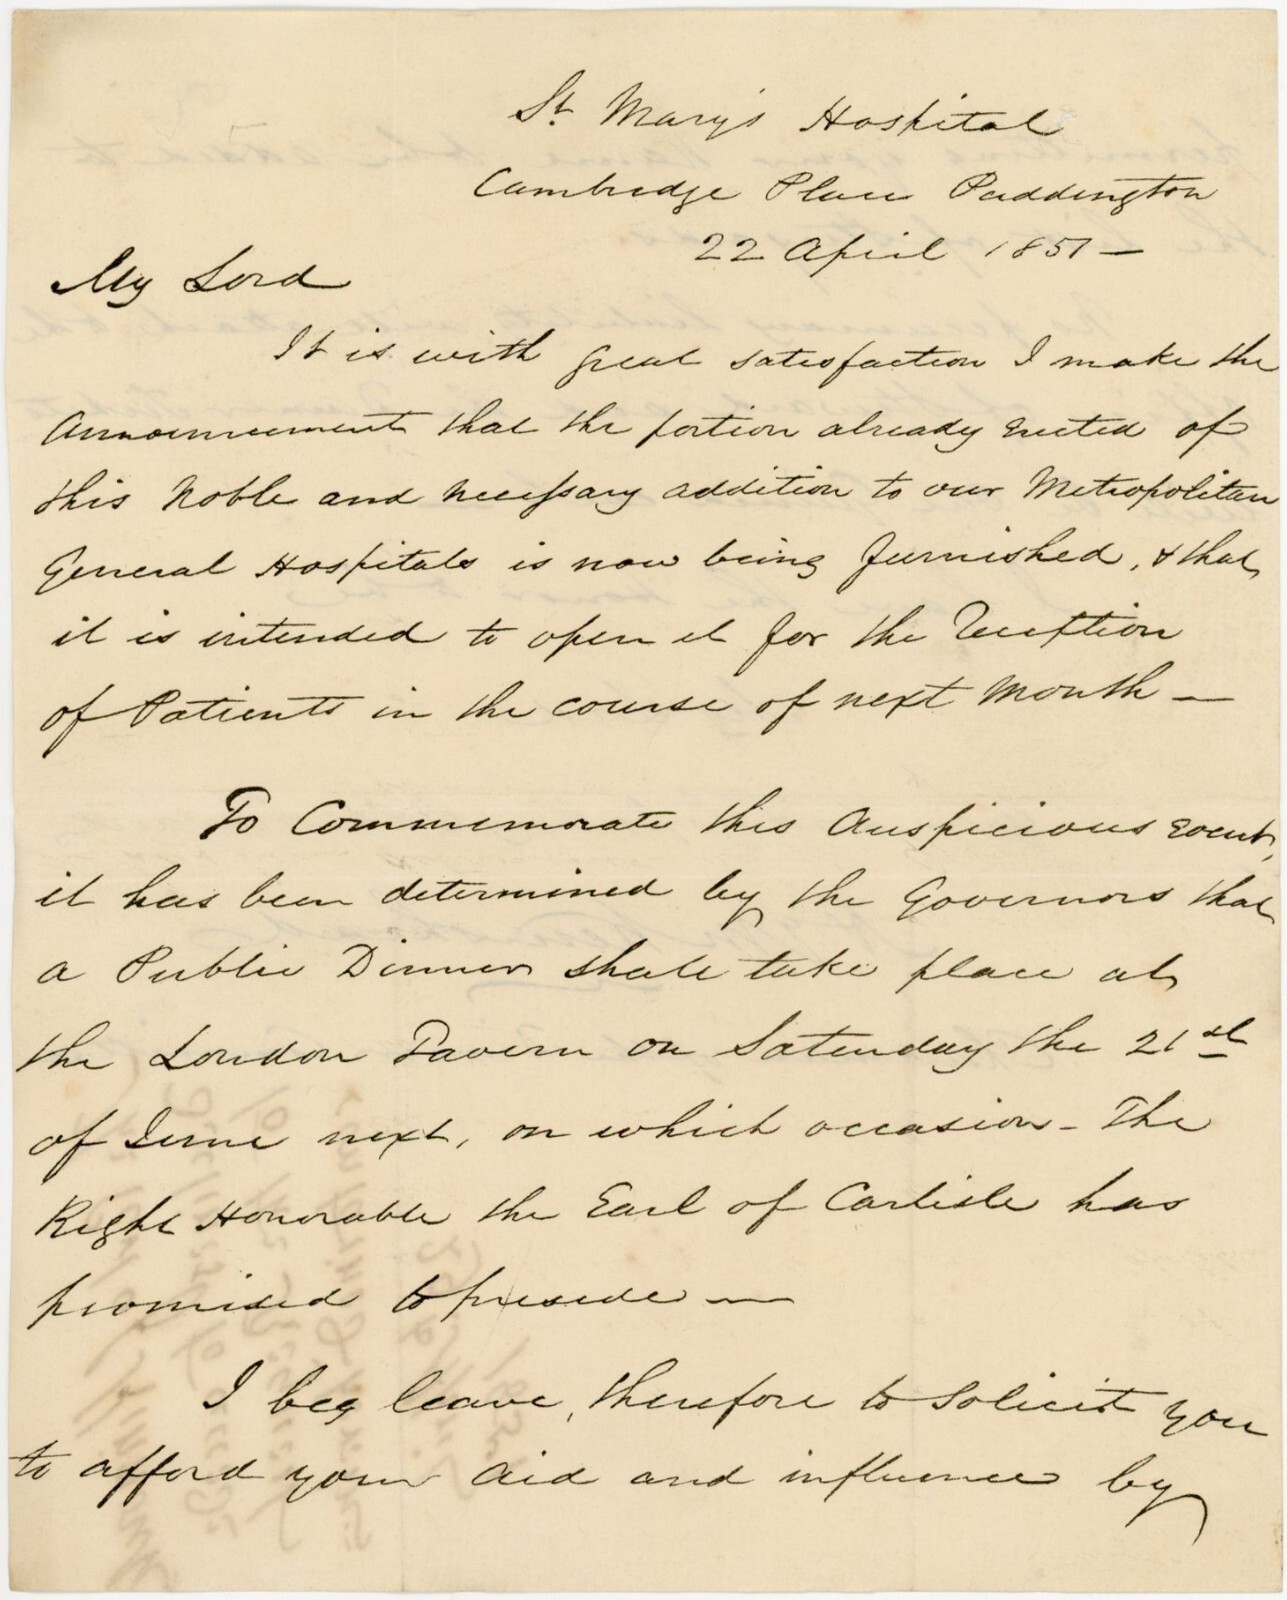 St. Mary's Hospital
Cambridge Place Paddington
22 April 1851 —
My Lord
It is with great satisfaction I make the
Announcement that the portion already erected of
this Noble and necessary addition to our Metropolitan
General Hospitals is now being furnished, & that
it is intended to open it for the Reception
of Patients in the course of next Month —
To Commemorate this Auspicious Event,
it has been determined by the Governors that
a Public Dinner shall take place at
the London Tavern on Saturday the 21st
of June next, on which occasion - The
Right Honorable the Earl of Carlisle has
promised to preside —
I beg leave, therefore to Solicit you
to afford your Aid and influence by